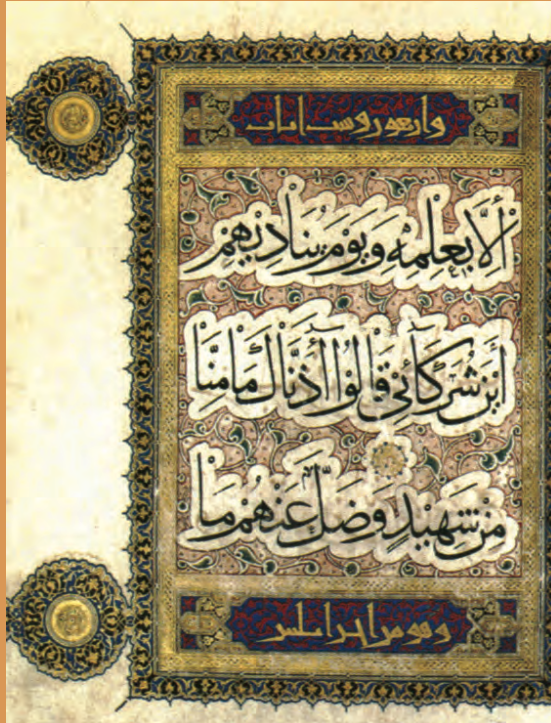 واربعون وست ايات
أَلَّا بِعِلْمِهِ وَيَوْمَ يُنَادِيهِمْ
أَيْنَ شُرَكَآئِي قَالُوا آذَنَّاكَ مَامِنَّا
مِنْ شَهِيدٍ وَضَلَّ عَنْهُمْ مَا